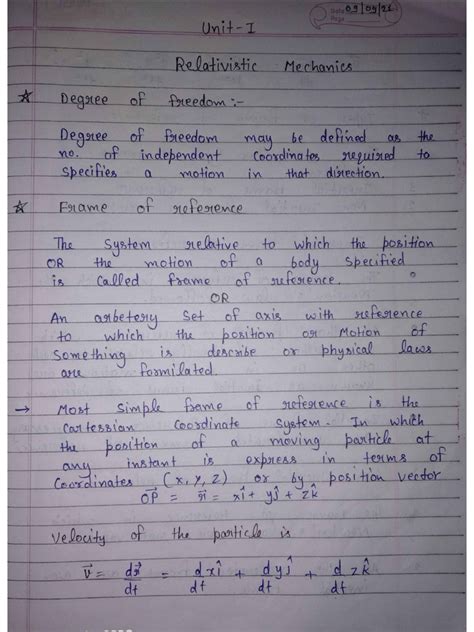 Date 09/09/21
Page
Unit-I
Relativistic Mechanics
☆ Degree of freedom:-
Degree of freedom may be defined as the
no. of independent coordinates required to
specifies a motion in that direction.
☆ Frame of reference
The system relative to which the position
OR the motion of a body specified
is called frame of reference.
OR
An arbetery set of axis with reference
to which the position or Motion of
something is describe or physical laws
are formilated.
→ Most simple frame of reference is the
cartessian coordinate system. In which
the position of a moving particle at
any instant is express in terms of
Coordinates (x, y, z) or by position vector
O⃗P = r⃗ = xî + yĵ + zk̂
Velocity of the particle is
v⃗ = dr⃗/dt = d/dt xî + d/dt yĵ + d/dt zk̂